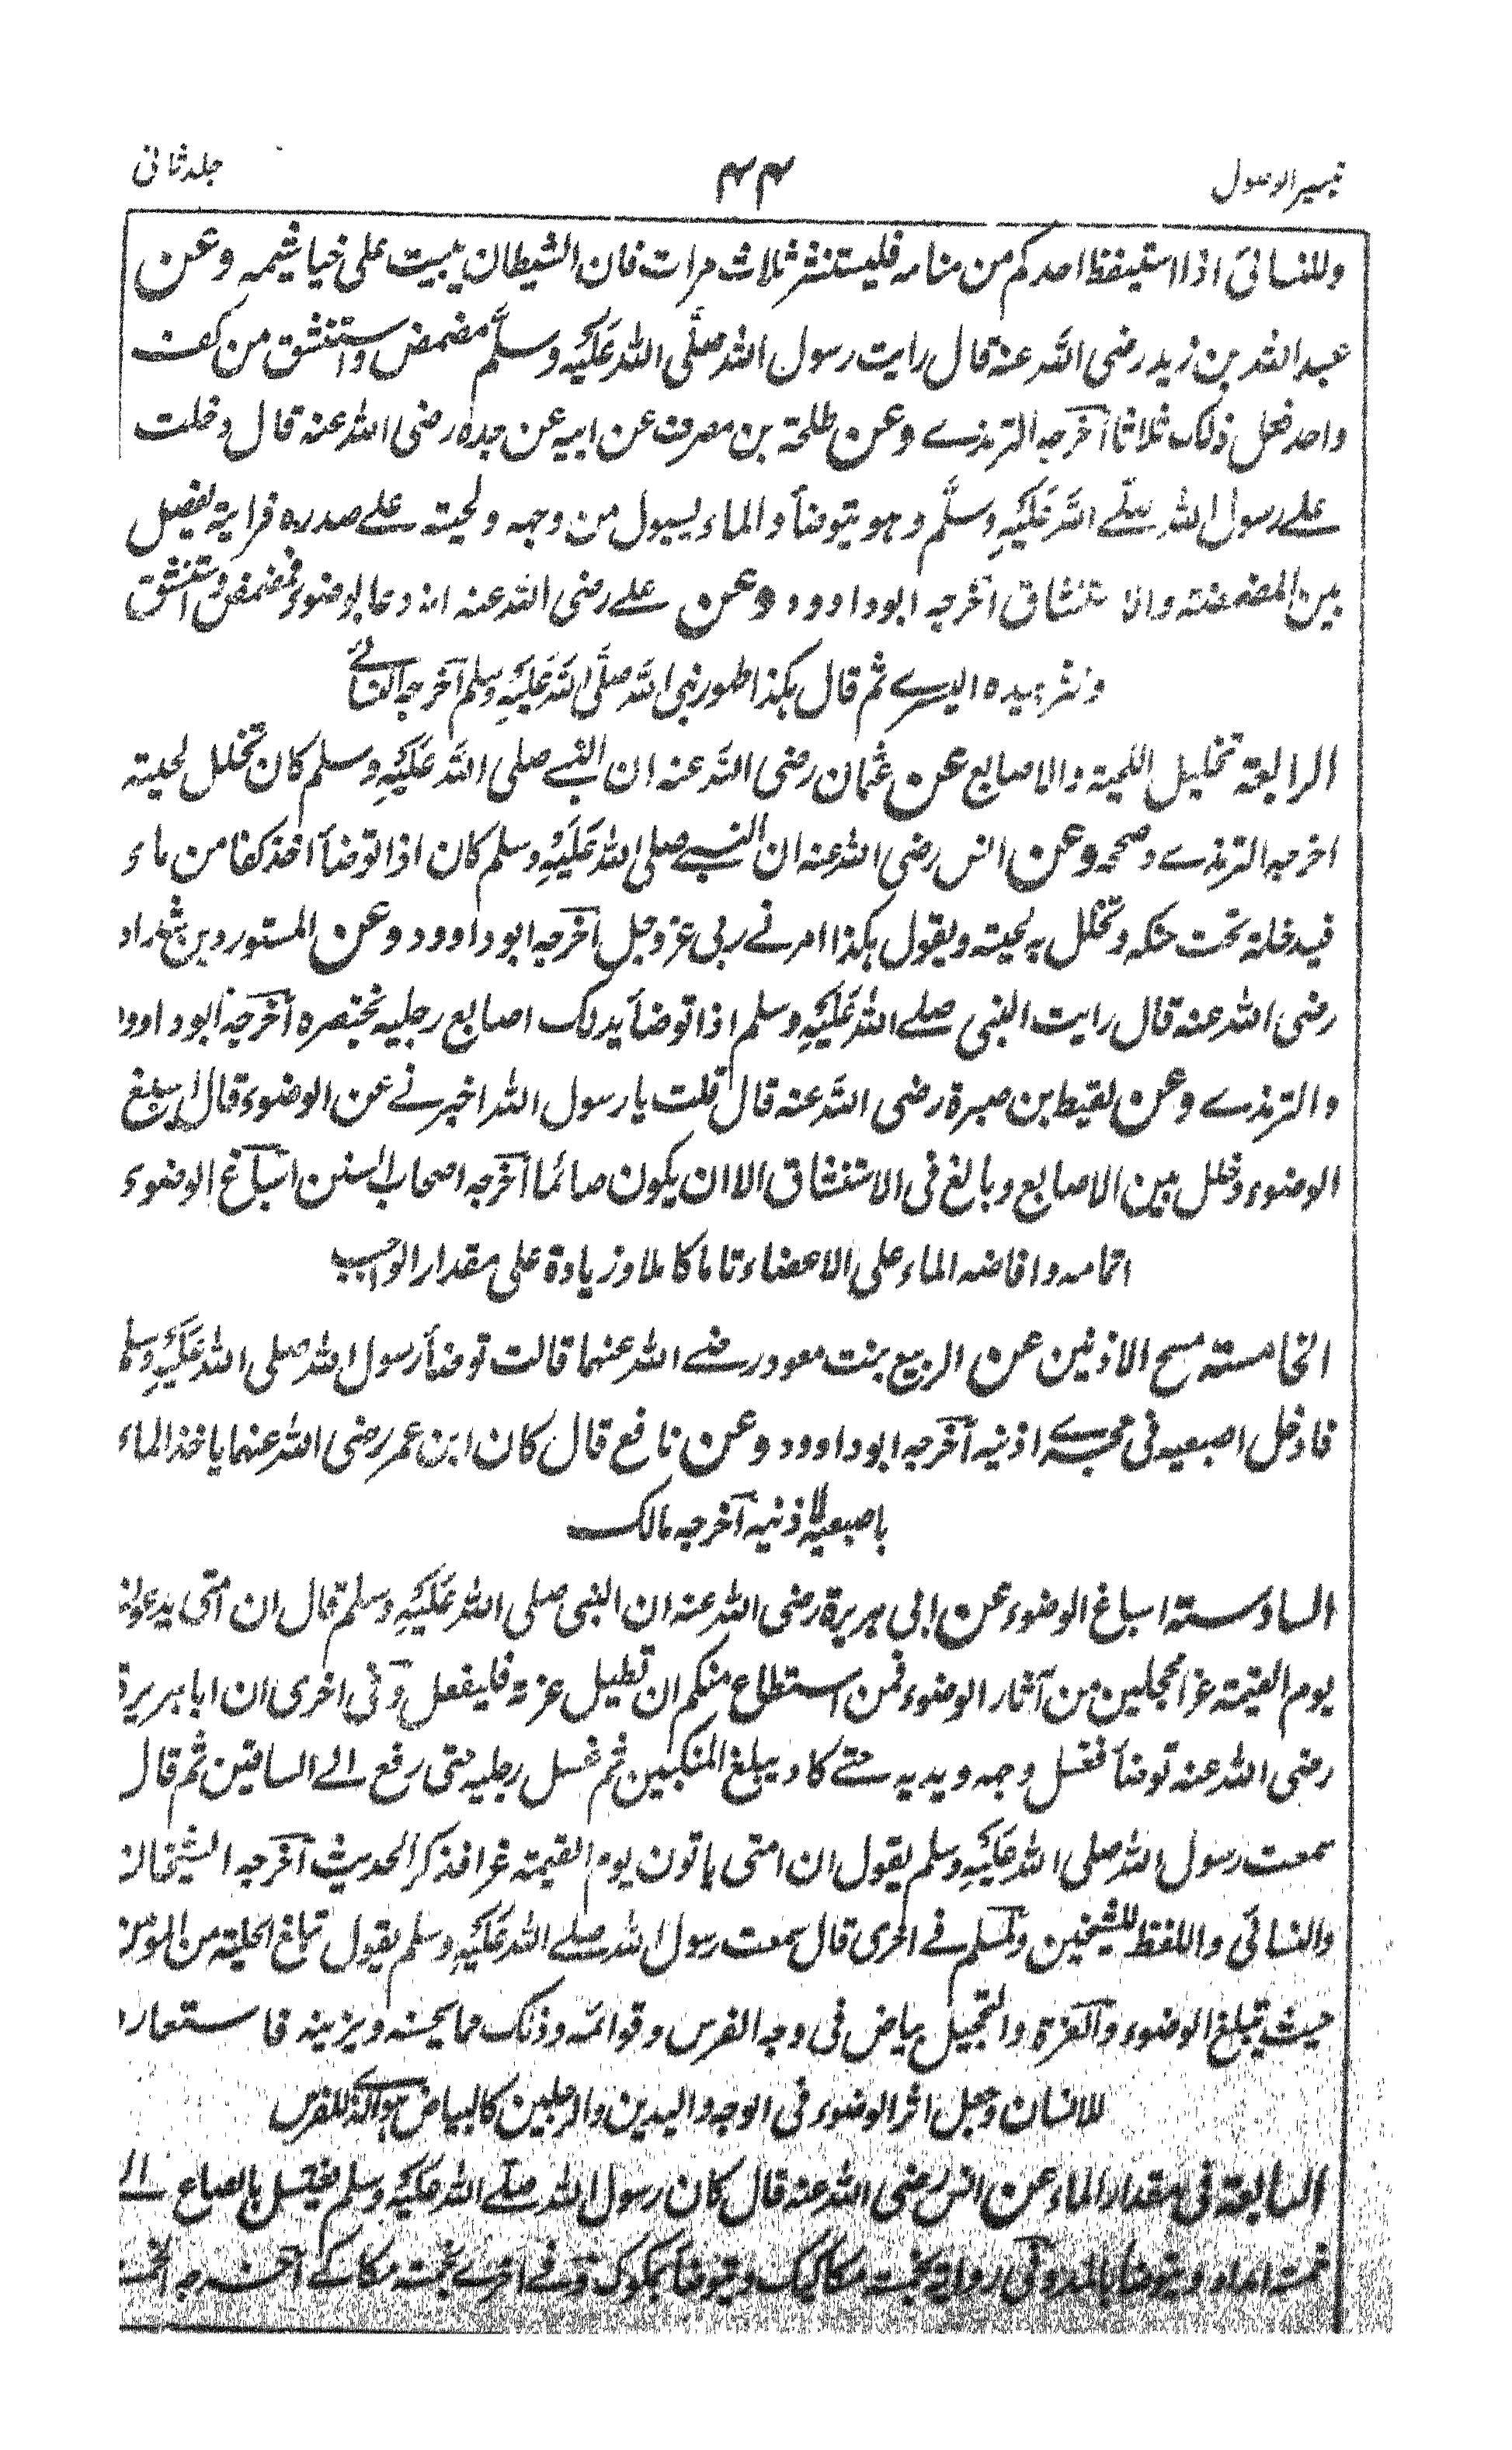 تيسير الوصول ٤٤ جلد ثانى
وللنسائى اذا استيقظ احدكم من منامه فليستنثر ثلاث مرات فان الشيطان يبيت على خياشيمه وعن
عبد الله بن زيد رضى الله عنه قال رايت رسول الله صلى الله عليه وسلم مضمض واستنشق من كف
واحد فعل ذلك ثلاثا اخرجه الترمذے وعن طلحة بن مصرف عن ابيه عن جده رضى الله عنه قال دخلت
علے رسول الله صلے الله عليه وسلم وهو يتوضأ والماء يسيل من وجهه ولحيته علے صدره فرايته يفصل
بين المضمضة والاستنشاق اخرجه ابوداوود وعن علے رضى الله عنه انه دعا بوضوء فمضمض واستنشق
ونثر بيده اليسرے ثم قال هكذا طهور نبى الله صلى الله عليه وسلم اخرجه النسائے
الرابعة تخليل اللحية والاصابع عن عثمان رضى الله عنه ان النبے صلى الله عليه وسلم كان تخلل لحيته
اخرجه الترمذے وصححه وعن انس رضى الله عنه ان النبے صلى الله عليه وسلم كان اذا توضأ اخذ كفا من ماء
فيدخلة تحت حنكه وتخلل به لحيته ويقول هكذا امرنے ربى عزوجل اخرجه ابوداوود وعن المستورد بن شداد
رضى الله عنه قال رايت النبى صلے الله عليه وسلم اذا توضأ يدلك اصابع رجليه بخنصره اخرجه ابوداوود
والترمذے وعن لقيط بن صبرة رضى الله عنه قال قلت يا رسول الله اخبرنے عن الوضوء قال اسبغ
الوضوء وخلل بين الاصابع وبالغ فى الاستنشاق الا ان يكون صائما اخرجه اصحاب السنن اسباغ الوضوء
اتمامه وافاضه الماء على الاعضاء تاما كاملا وزيادة على مقدار الواجب
الخامسة مسح الاذنين عن الربيع بنت معوذ رضے الله عنهما قالت توضأ رسول الله صلى الله عليه وسلم
فادخل اصبعيه فى جحرے اذنيه اخرجه ابوداوود وعن نافع قال كان ابن عمر رضى الله عنهما ياخذ الماء
باصبعيه لاذنيه اخرجه مالك
السادسة اسباغ الوضوء عن ابى هريرة رضى الله عنه ان النبى صلى الله عليه وسلم قال ان امتى يدعون
يوم القيمة غرا محجلين من آثار الوضوء فمن استطاع منكم ان تطيل غرته فليفعل وفى اخرى ان ابا هريرة
رضى الله عنه توضأ فغسل وجهه ويديه حتے كاد يبلغ المنكبين ثم غسل رجليه حتى رفع الے الساقين ثم قال
سمعت رسول الله صلى الله عليه وسلم يقول ان امتى ياتون يوم القيمة غرا فذكر الحديث اخرجه الشيخان
والنسائى واللفظ للشيخين ولمسلم فے اخرى قال سمعت رسول الله صلے الله عليه وسلم يقول تبلغ الحلية من المومن
حيث يبلغ الوضوء والغرة والتحجيل بياض فى وجه الفرس وقوائمه وذلك مما يحسنه ويزينه فاستعاره
للانسان وجعل اثر الوضوء فى الوجه واليدين والرجلين كالبياض هو الذ للفرس
السابعة فى مقدار الماء عن انس رضى الله عنه قال كان رسول الله صلے الله عليه وسلم يغتسل بالصاع الے
خمسة امداد ويتوضأ بالمد وفى رواية بخمسة مكاكيك ويتوضأ بمكوك وفے اخرے بخمسة مكاكے اخرجه الخمسة